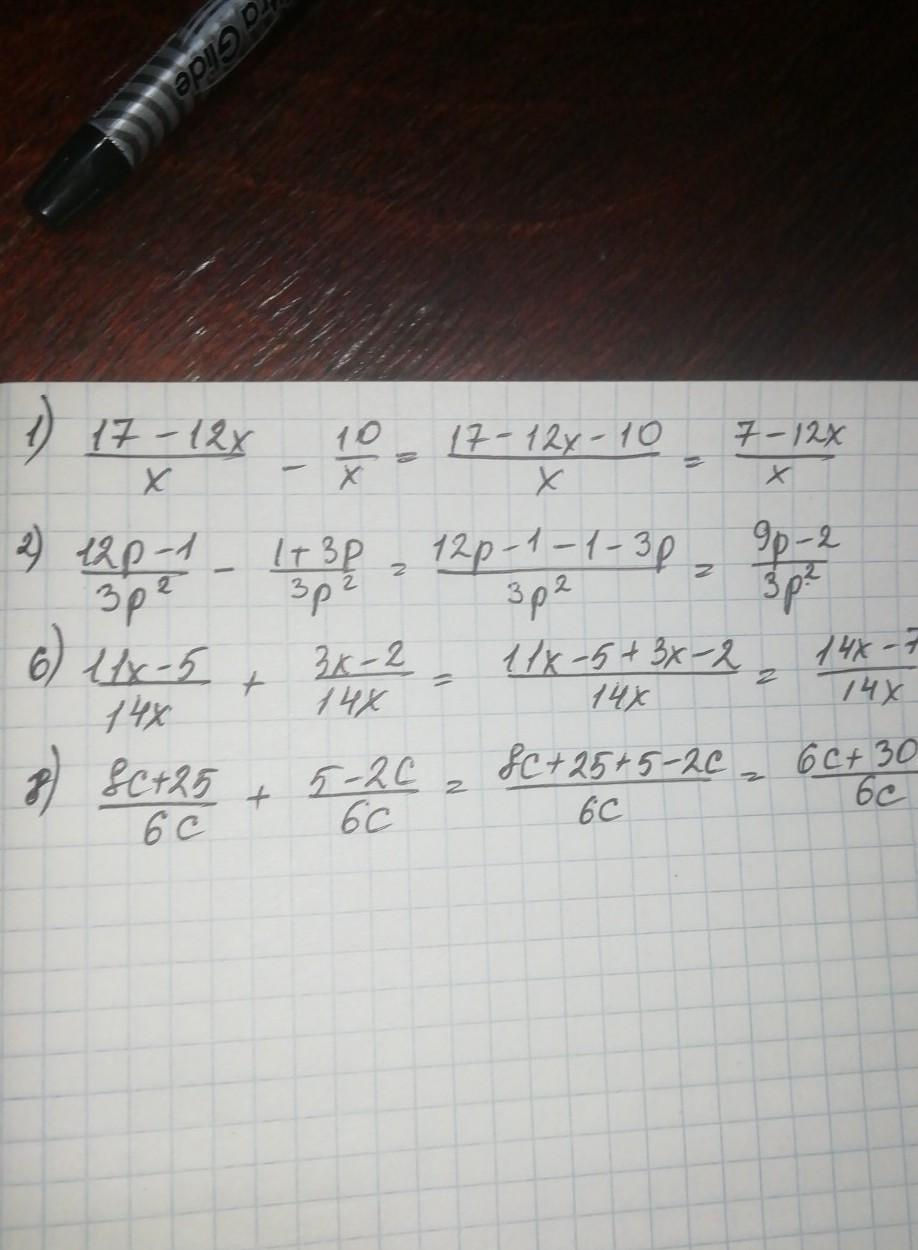 Glide
1) (17 - 12x)/x - 10/x = (17 - 12x - 10)/x = (7 - 12x)/x
2) (12p - 1)/(3p²) - (1 + 3p)/(3p²) = (12p - 1 - 1 - 3p)/(3p²) = (9p - 2)/(3p²)
6) (11x - 5)/(14x) + (3x - 2)/(14x) = (11x - 5 + 3x - 2)/(14x) = (14x - 7)/(14x)
8) (8c + 25)/(6c) + (5 - 2c)/(6c) = (8c + 25 + 5 - 2c)/(6c) = (6c + 30)/(6c)